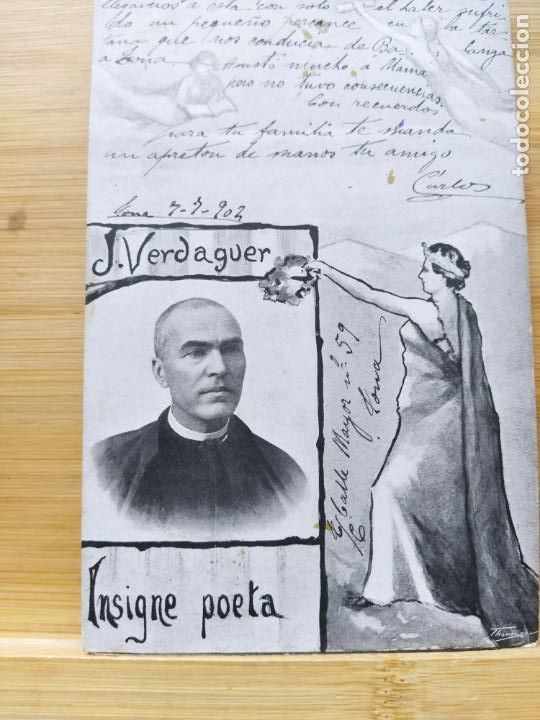 llegaremos a esta con solo el haber sufri-
do un pequeño percance en la tar-
tana que nos conducia de Ba- langa
a Tona
asustó mucho a Mama
pero no tuvo consecuencias.
Con recuerdos
para tu familia te manda
un apreton de manos tu amigo
Carlos
Tona 7-7-902
J. Verdaguer
Calle Mayor nº 59
Tona
Insigne poeta
Thomas
todocoleccion